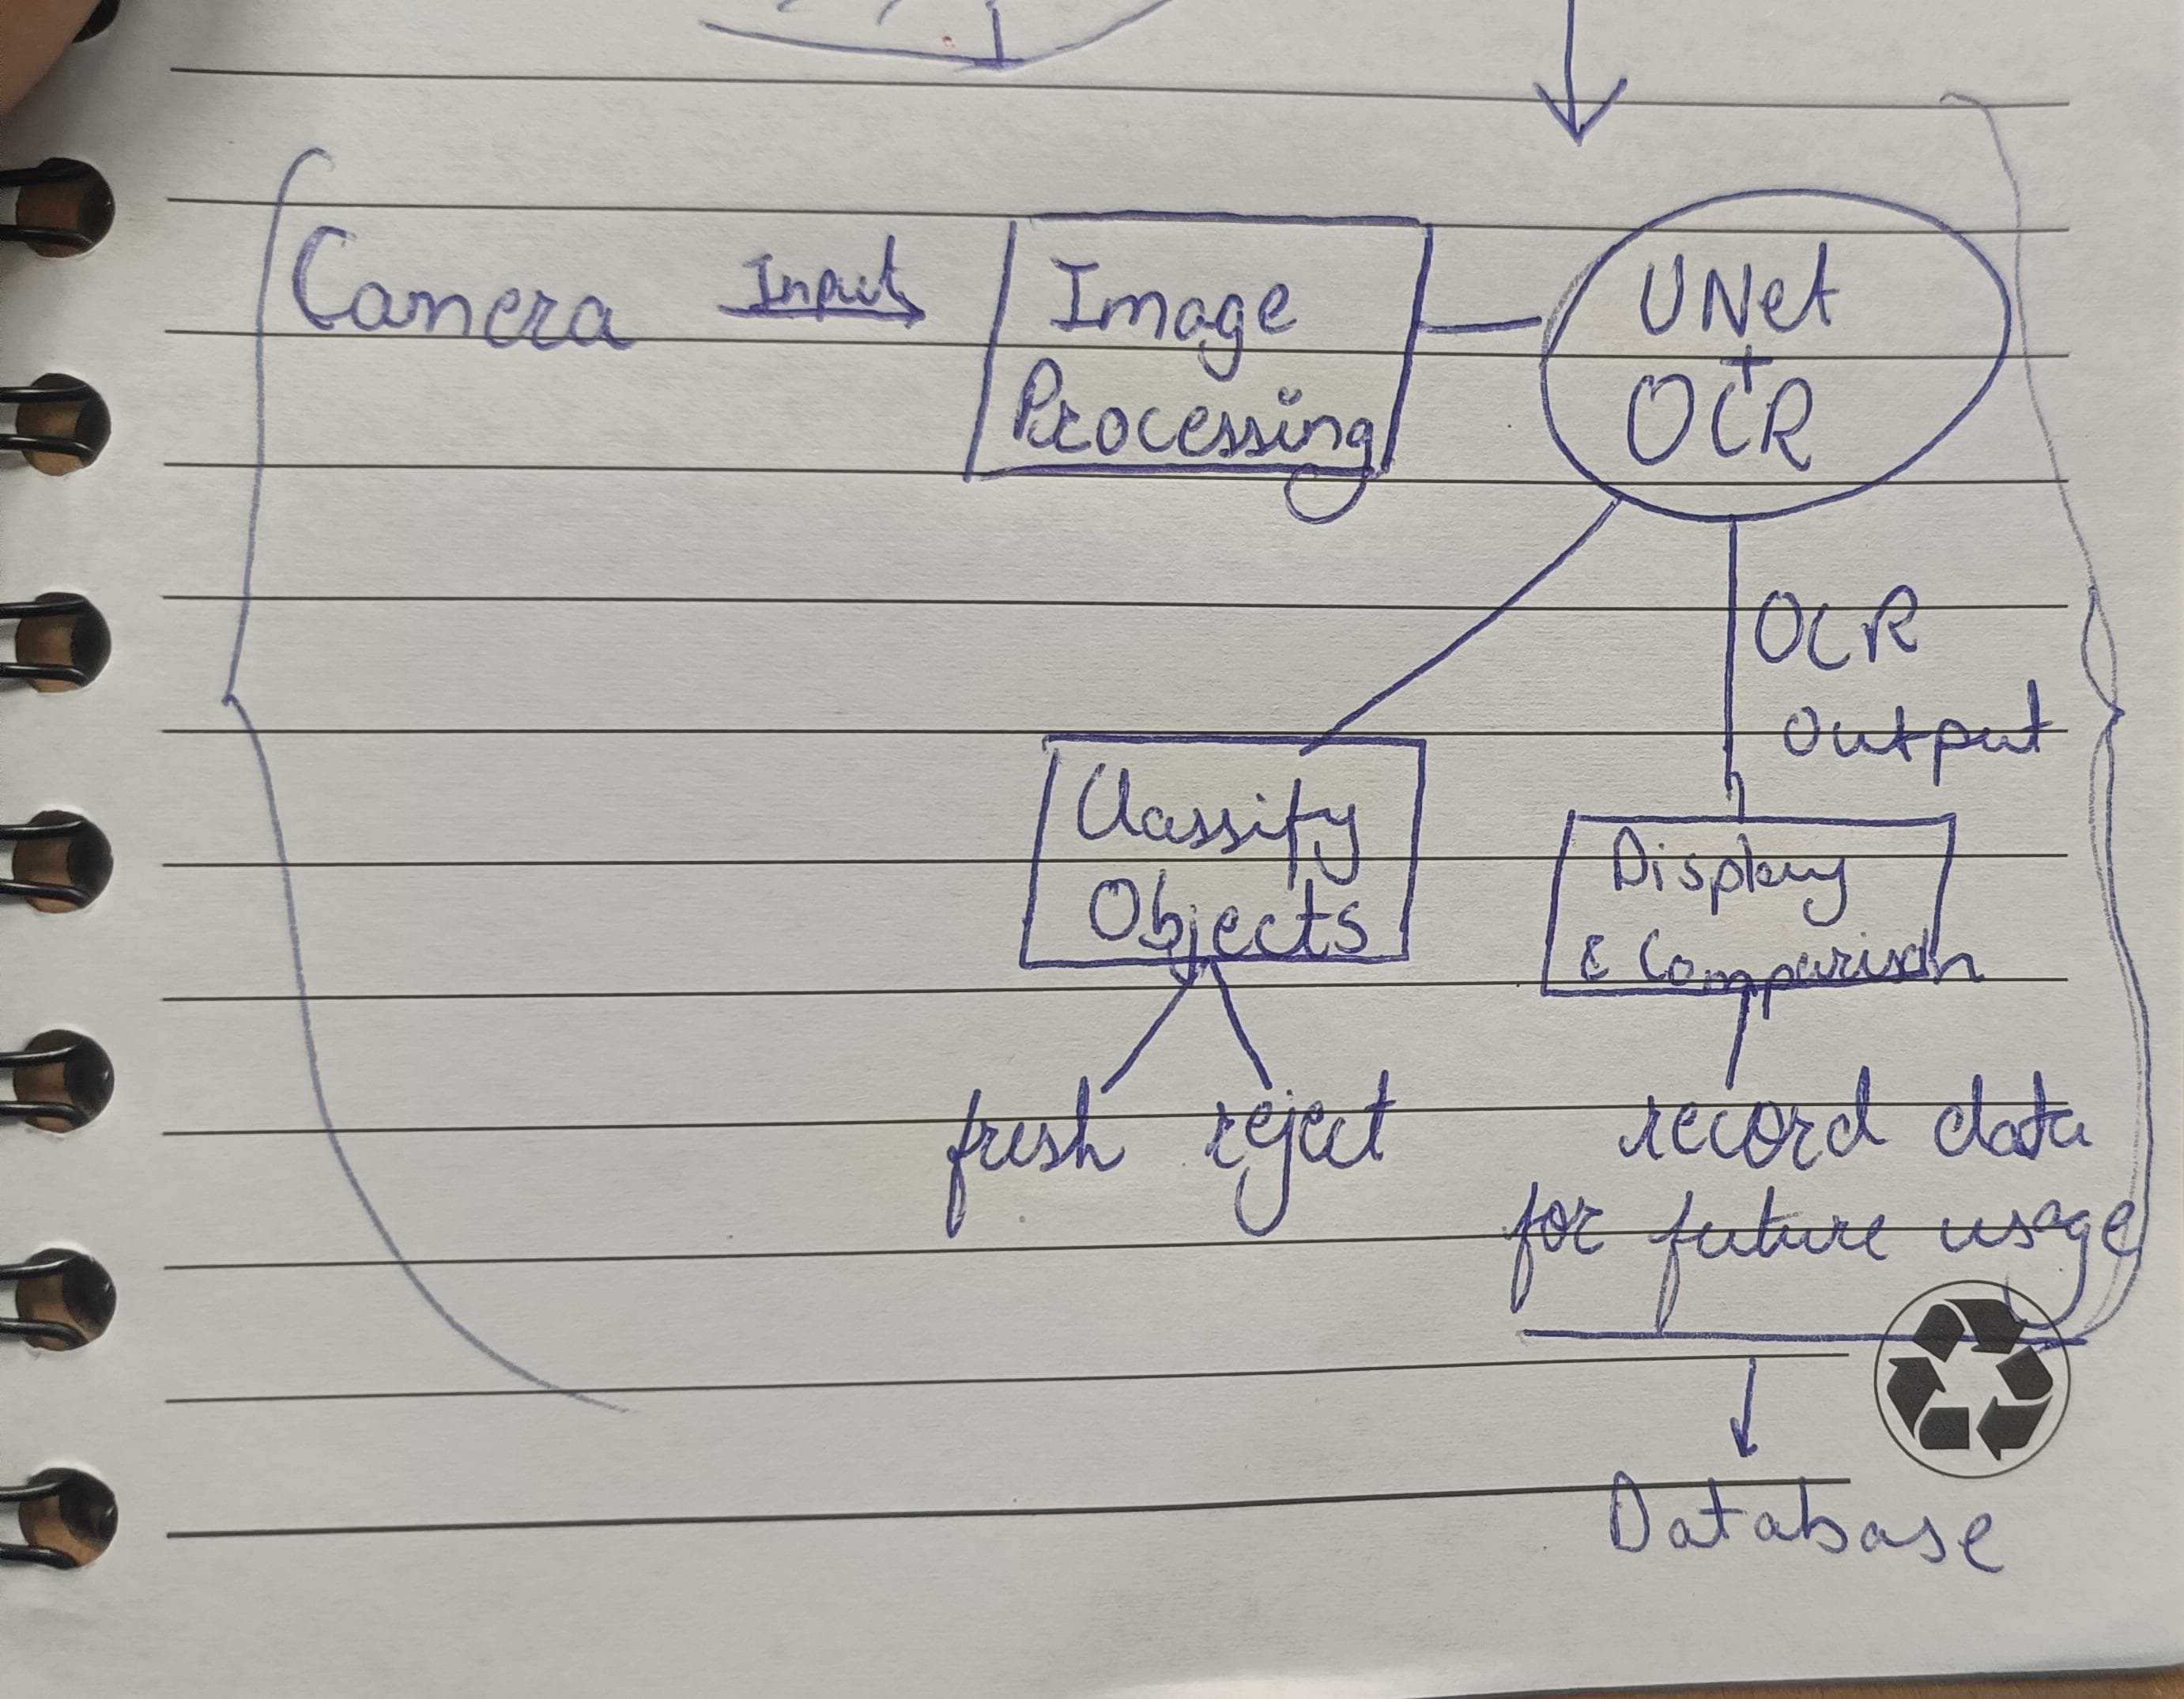 Camera
Input
Image
Processing
UNet
+
OCR
OCR
Output
Classify
Objects
Display
& Comparison
fresh
reject
record data
for future usage
Database